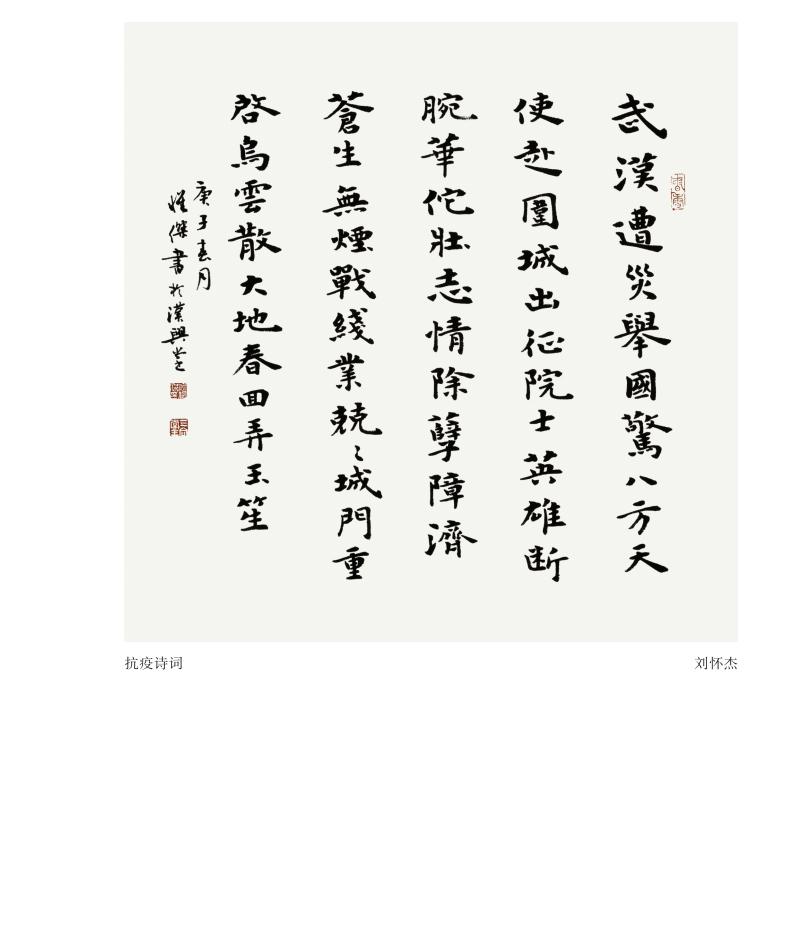 武漢遭災舉國驚八方天
使赴圍城出征院士英雄断
腕華佗壯志情除孽障濟
蒼生無煙戰綫業兢〻城門重
啓烏雲散大地春回弄玉笙
庚子春月
懷傑書於漢興
抗疫诗词
刘怀杰